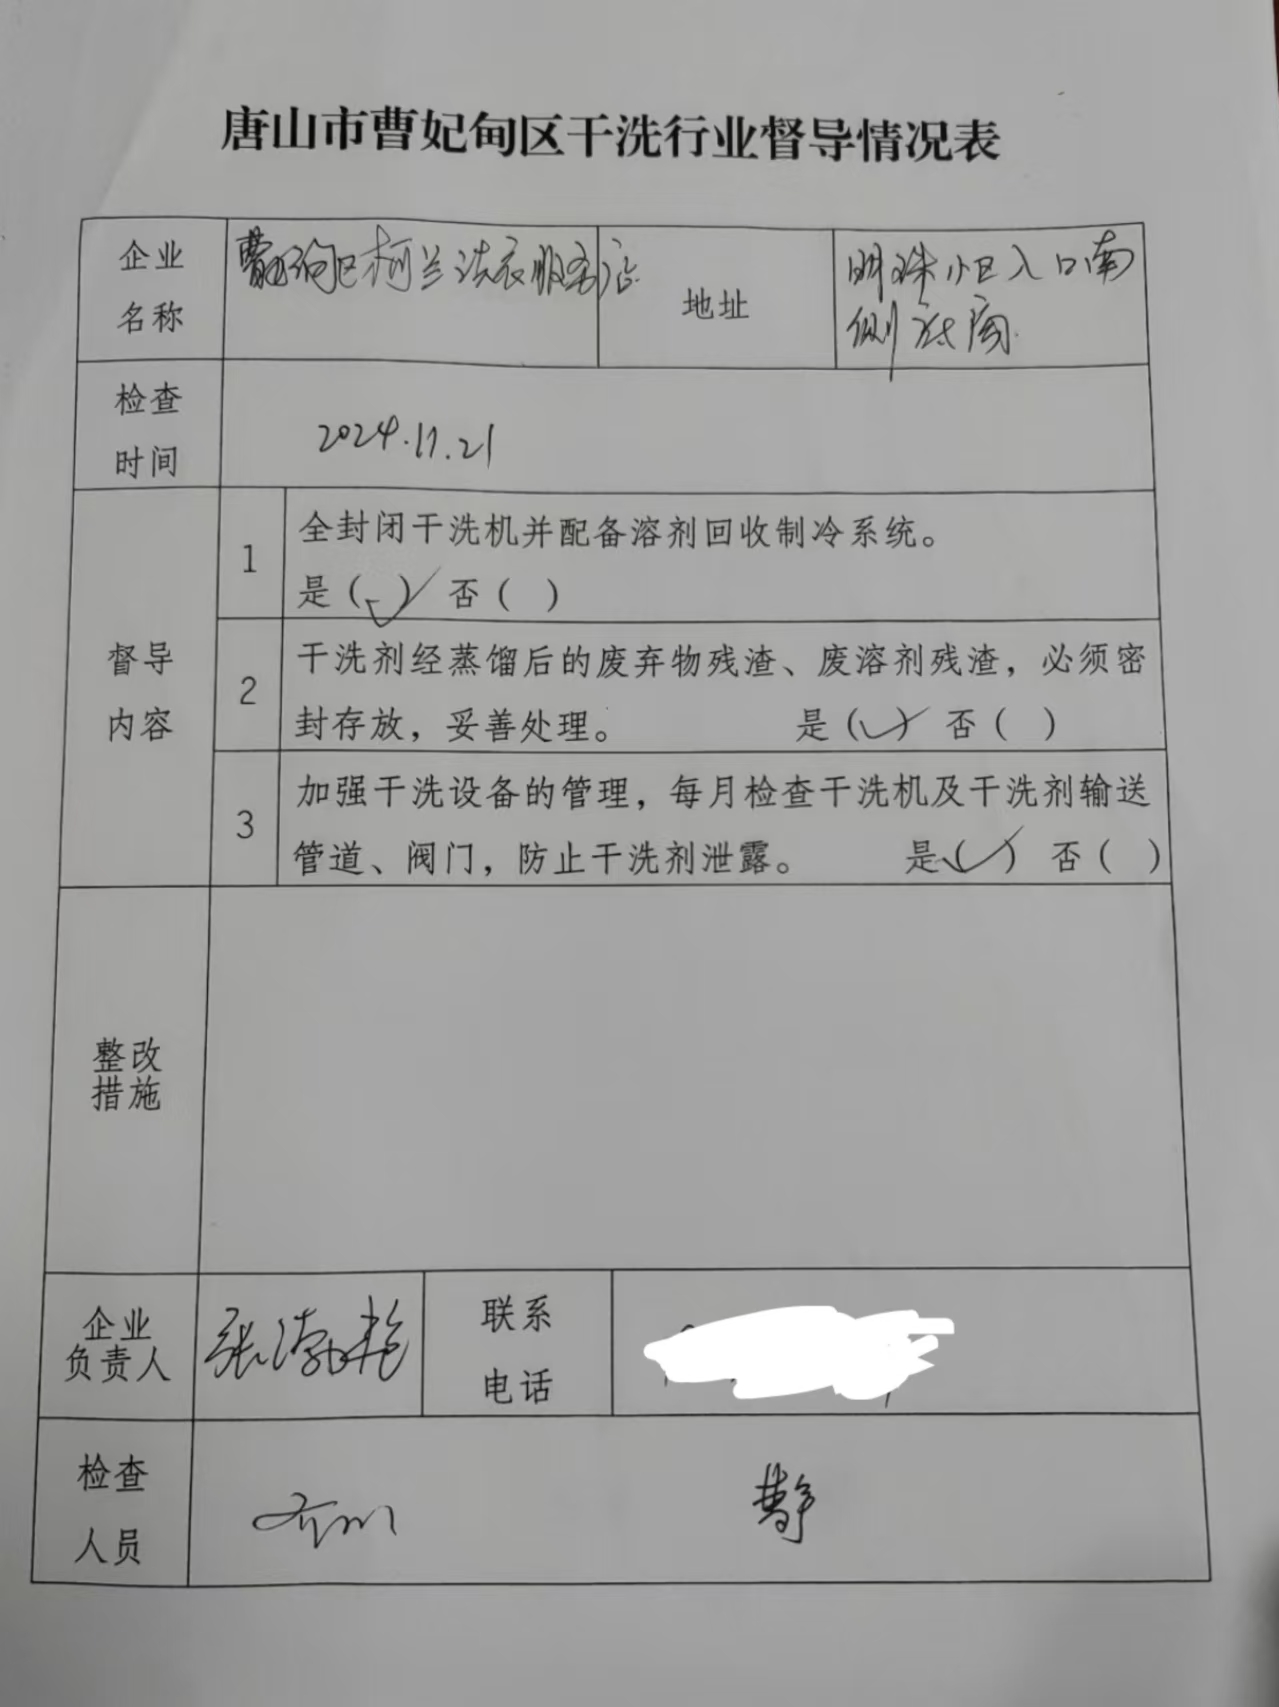 唐山市曹妃甸区干洗行业督导情况表
企业
名称
曹妃甸区柯兰洗衣服务店
地址
明珠小区入口南
侧底商
检查
时间
2024.11.21
督导
内容
1
全封闭干洗机并配备溶剂回收制冷系统。
是(✓) 否( )
2
干洗剂经蒸馏后的废弃物残渣、废溶剂残渣，必须密
封存放，妥善处理。 是(✓) 否( )
3
加强干洗设备的管理，每月检查干洗机及干洗剂输送
管道、阀门，防止干洗剂泄露。 是(✓) 否( )
整改
措施
企业
负责人
张渤艳
联系
电话
检查
人员